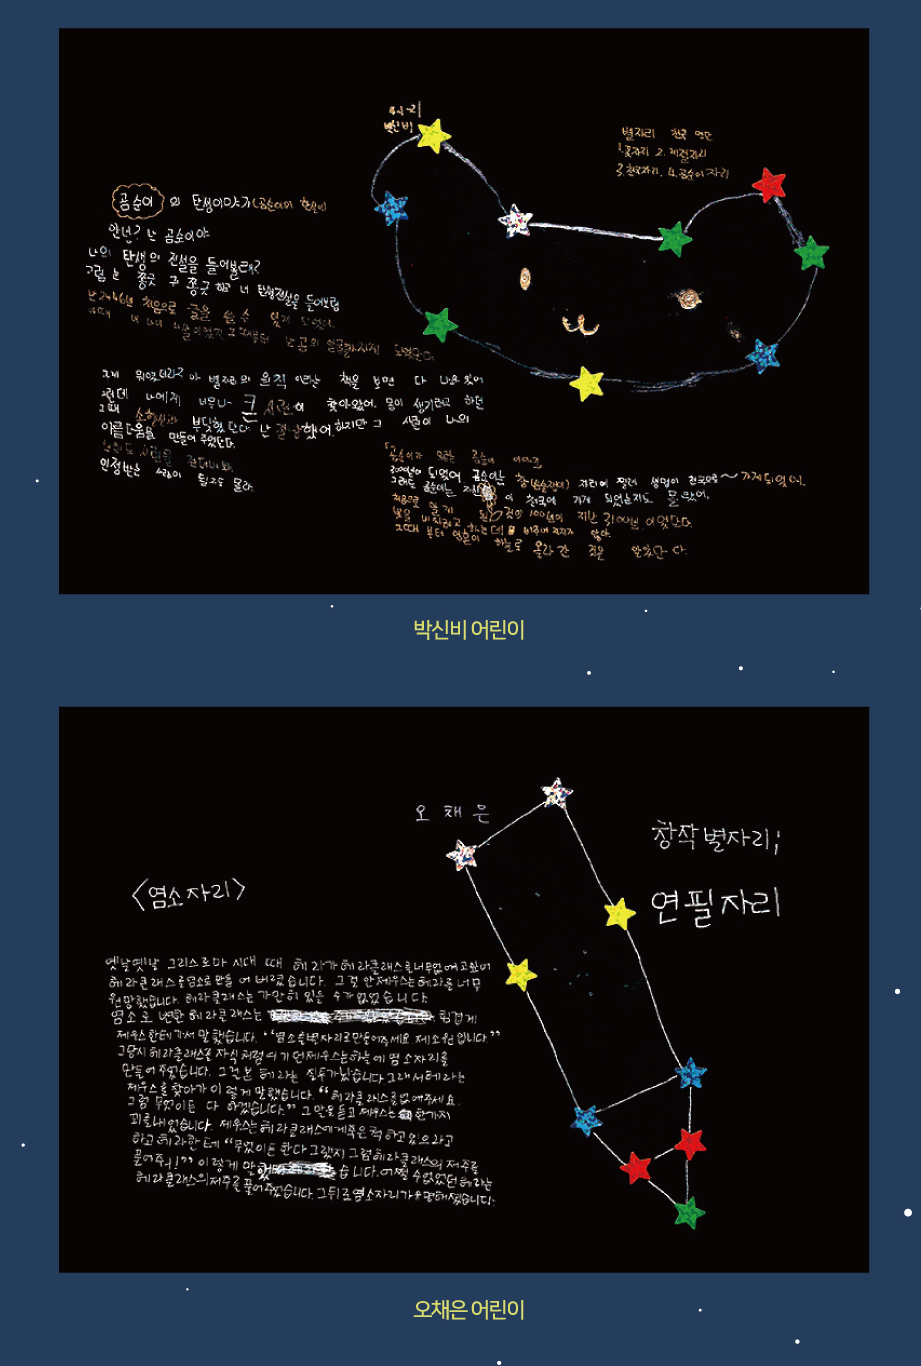 박신비
별자리 천국 명단
1.꽃자리 2.계절자리
3.천국자리. 4.곰순이자리
곰순이 의 탄생이야기(곰순이의
안녕? 난 곰순이야
나의 탄생의 전설을 들어볼래?
그럼 는 쫑긋 귀 쫑긋 하고 너 탄생전설을 들어보렴
난 2446년 처음으로 글을 쓸 수 있게 되었어.
그게 뭐였더라? 아 별자리의 원칙 이라는 책을 보면 다 나와 있어
그런데 나에게 너무나 큰 시련이 찾아왔어. 몸이 생기려고 하던
그때 소행성과 부딪혔단다. 난 절망했어. 하지만 그 시련이 나의
아름다움을 만들어 주었단다.
인정받는 사람이 될지도 몰라.
곰순이가 모르는 곰순이 이야기
300년이 되었어 곰순이는 자리에 찔려 생명이 천국으로~ 가게되었어.
그래도 곰순이는 자신이 천국에 가게 되었는지도 몰랐어.
처음으로 알게 된 것은 100년이 지난 3100년 이었단다.
빛을 비치려고 하는데 비추어지지 않아.
그때 부터 영혼이 하늘로 올라간 것을 알았단다.
박신비 어린이
오채은
창작 별자리;
연필자리
<염소자리>
옛날옛날 그리스로마 시대 때 헤라가 헤라클래스를 너무 없애고 싶어
헤라클래스를 염소로 만들어 버렸습니다. 그걸 안 제우스는 헤라를 너무
원망했습니다. 헤라클래스는 가만히 있을 수가 없었습니다.
염소로 변한 헤라클래스는 힘겹게
제우스한테 가서 말했습니다. “염소를 별자리로 만들어주세요 제 소원입니다.”
그당시 헤라클래스를 자식처럼 여기던 제우스는 하늘에 염소자리를
만들어주었습니다. 그걸 본 헤라는 질투가 났습니다 그래서 헤라는
제우스를 찾아가 이렇게 말했습니다. “헤라클래스를 없애주세요.
그럼 무엇이든 다 하겠습니다.” 그 말을 듣고 제우스는 한가지
꾀를 내었습니다. 제우스는 헤라클래스에게 죽은 척 하고 있으라고
하고 헤라한테 “무엇이든 한다 그랬지 그럼 헤라클래스의 저주를
풀어주지!” 이렇게 말 습니다. 어쩔 수 없었던 헤라는
헤라클래스의 저주를 풀어주었습니다. 그뒤로 염소자리가 유명해졌습니다.
오채은 어린이